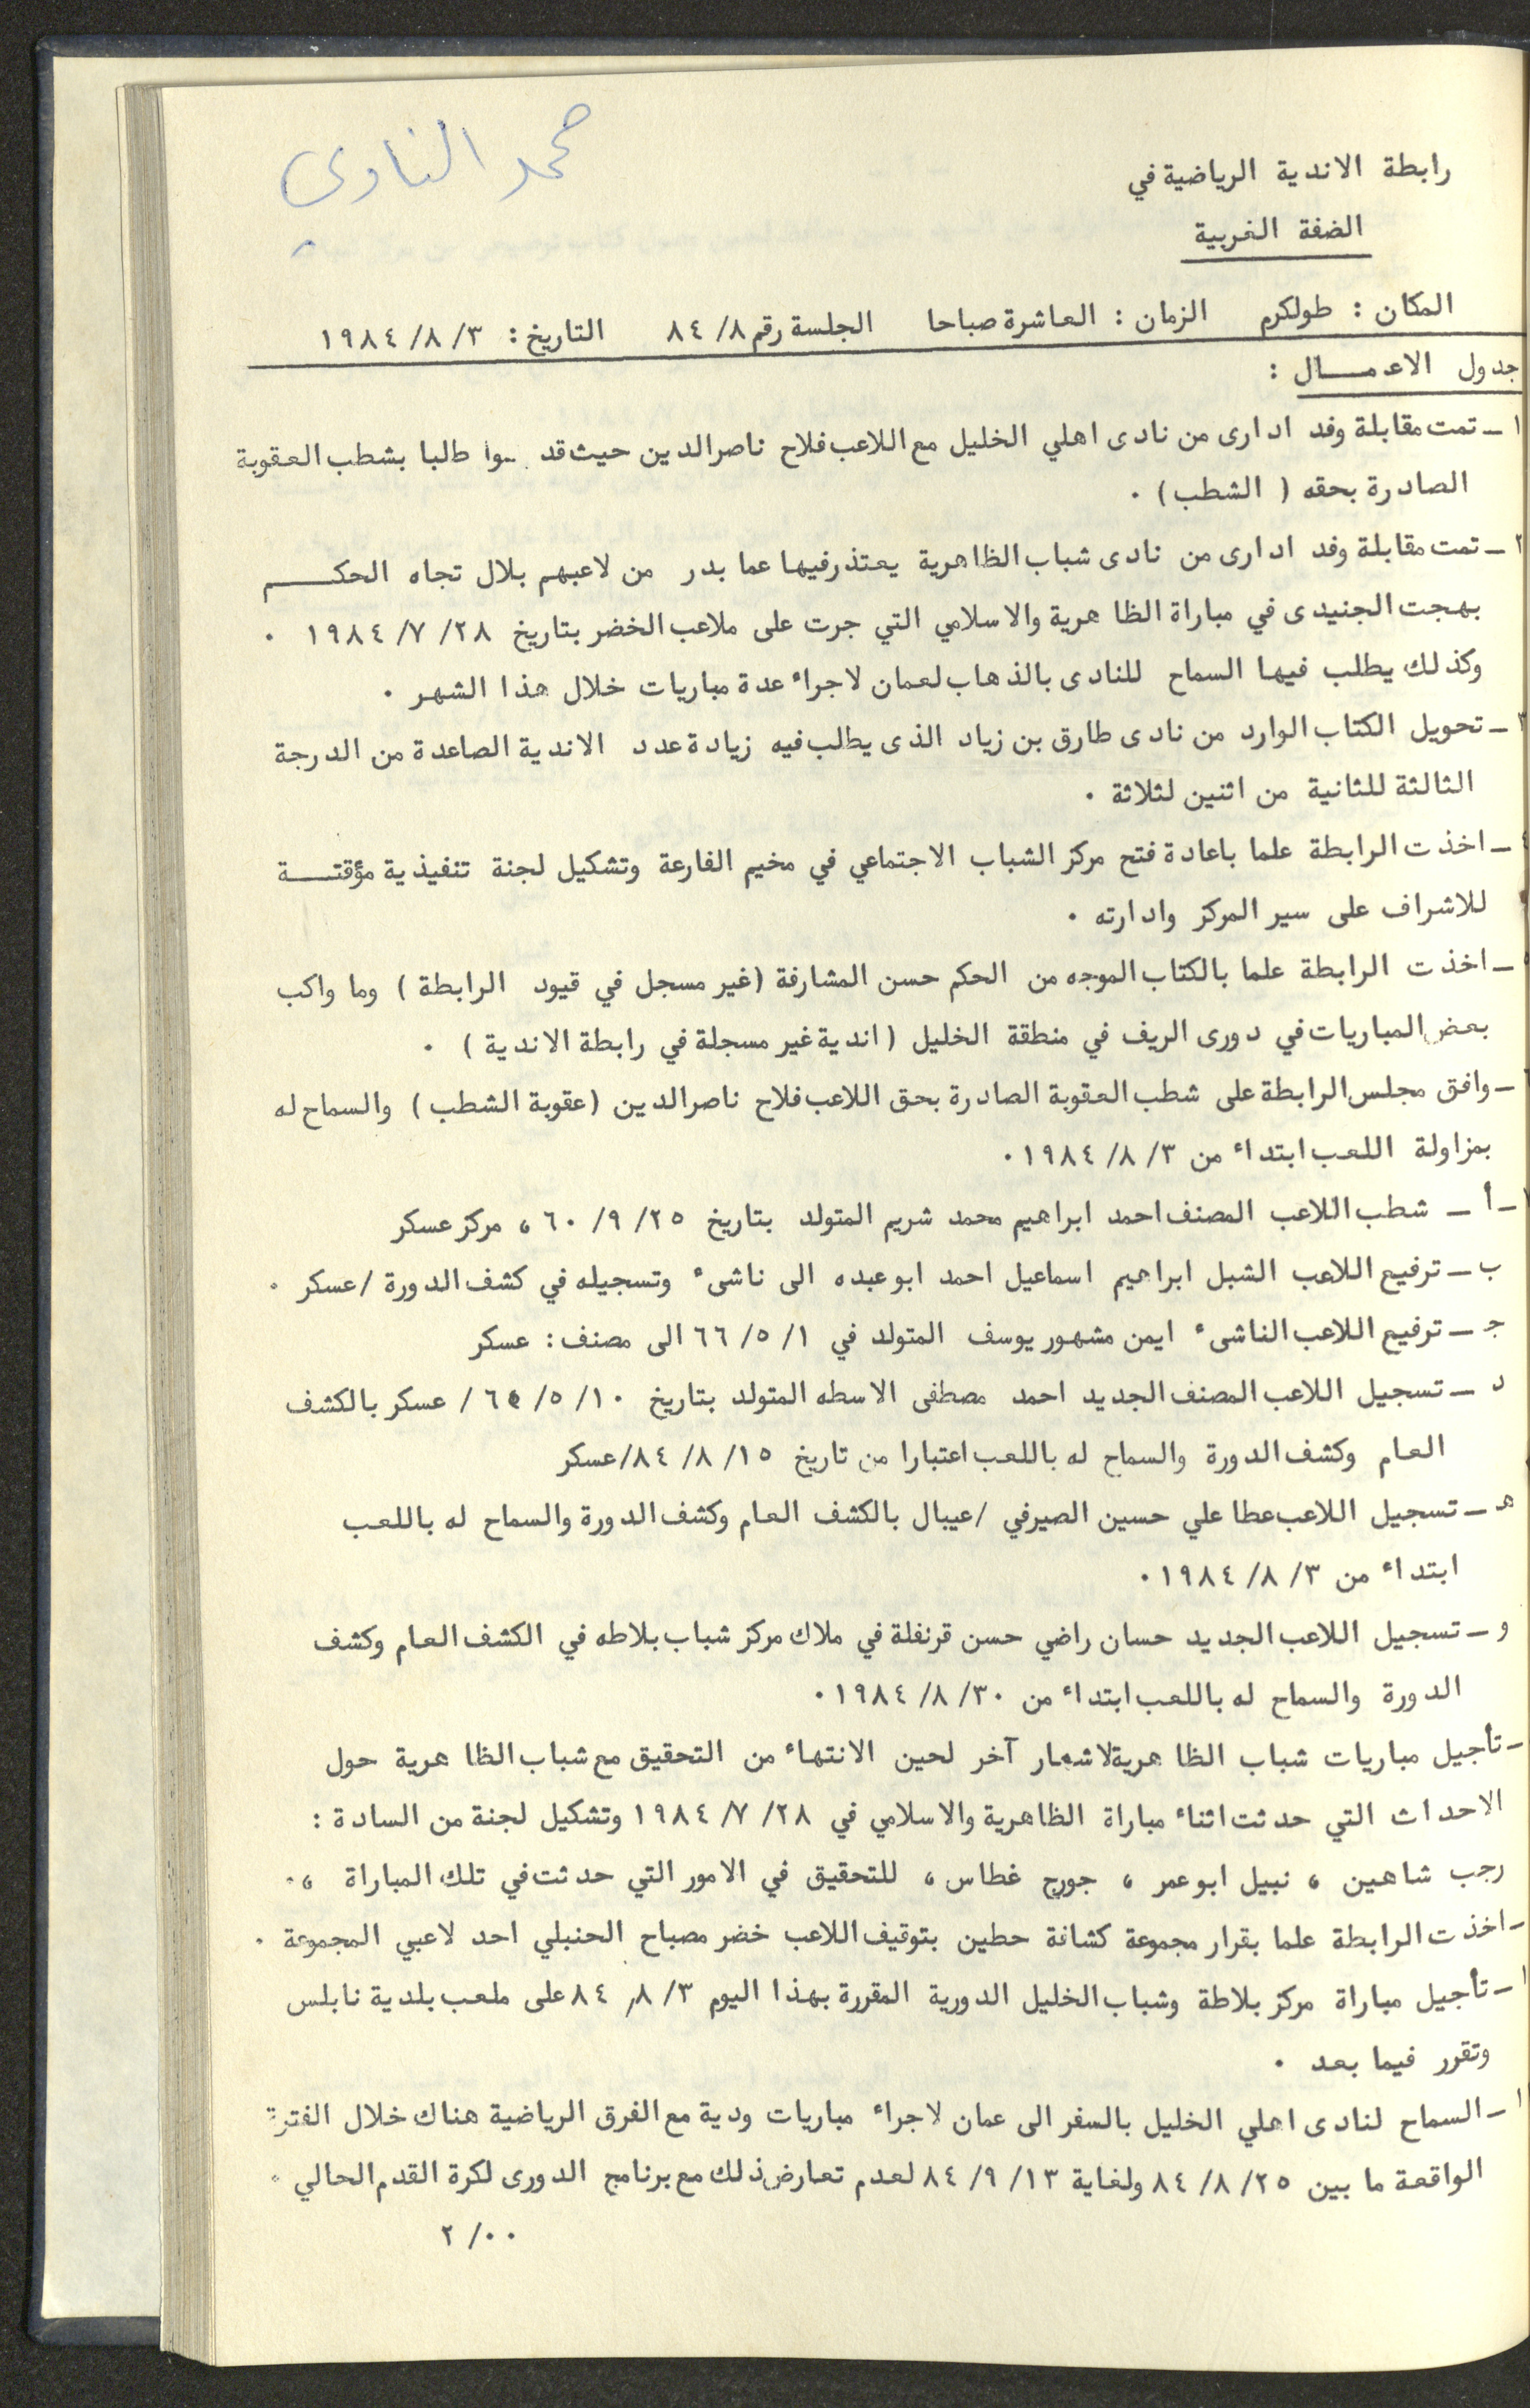 رابطة الاندية الرياضية في
الضفة الغربية
المكان : طولكرم الزمان : العاشرة صباحا الجلسة رقم ٨/ ٨٤ التاريخ : ٣/ ٨/ ١٩٨٤
جدول الاعمـــال :
١ـ تمت مقابلة وفد ادارى من نادى اهلي الخليل مع اللاعب فلاح ناصرالدين حيث طلبا بشطب العقوبة
الصادرة بحقه ( الشطب ) ٠
٢ـ تمت مقابلة وفد ادارى من نادى شباب الظاهرية يعتذرفيها عما بدر من لاعبهم بلال تجاه الحكـــم
بهجت الجنيدى في مباراة الظاهرية والاسلامي التي جرت على ملاعب الخضر بتاريخ ٢٨/ ٧/ ١٩٨٤ ٠
وكذلك يطلب فيها السماح للنادى بالذهاب لعمان لاجراء عدة مباريات خلال هذا الشهر ٠
ـ تحويل الكتاب الوارد من نادى طارق بن زياد الذى يطلب فيه زيادة عدد الاندية الصاعدة من الدرجة
الثالثة للثانية من اثنين لثلاثة ٠
ـ اخذت الرابطة علما باعادة فتح مركز الشباب الاجتماعي في مخيم الفارعة وتشكيل لجنة تنفيذية مؤقتـــة
للاشراف على سير المركز وادارته ٠
ـ اخذت الرابطة علما بالكتاب الموجه من الحكم حسن المشارفة (غير مسجل في قيود الرابطة ) وما واكب
بعض المباريات في دورى الريف في منطقة الخليل ( اندية غير مسجلة في رابطة الاندية ) ٠
ـ وافق مجلس الرابطة على شطب العقوبة الصادرة بحق اللاعب فلاح ناصرالدين (عقوبة الشطب ) والسماح له
بمزاولة اللعب ابتداء من ٣/ ٨/ ١٩٨٤٠
ـ أ ـ شطب اللاعب المصنف احمد ابراهيم محمد شريم المتولد بتاريخ ٢٥/ ٩/ ٦٠ ، مركز عسكر
ب ـ ترفيع اللاعب الشبل ابراهيم اسماعيل احمد ابوعبده الى ناشىء وتسجيله في كشف الدورة /عسكر ٠
جـ ـ ترفيع اللاعب الناشىء ايمن مشهور يوسف المتولد في ١/ ٥/ ٦٦ الى مصنف : عسكر
د ـ تسجيل اللاعب المصنف الجديد احمد مصطفى الاسطه المتولد بتاريخ ١٠/ ٥/ / عسكر بالكشف
العام وكشف الدورة والسماح له باللعب اعتبارا من تاريخ ١٥/ ٨/ ٨٤/عسكر
هـ ـ تسجيل اللاعب عطا علي حسين الصيرفي /عيبال بالكشف العام وكشف الدورة والسماح له باللعب
ابتداء من ٣/ ٨/ ١٩٨٤٠
و ـ تسجيل اللاعب الجديد حسان راضي حسن قرنفلة في ملاك مركز شباب بلاطه في الكشف العام وكشف
الدورة والسماح له باللعب ابتداء من ٣٠/ ٨/ ١٩٨٤٠
ـ تأجيل مباريات شباب الظاهرية لاشعار آخر لحين الانتهاء من التحقيق مع شباب الظاهرية حول
الاحداث التي حدثت اثناء مباراة الظاهرية والاسلامي في ٢٨/ ٧/ ١٩٨٤ وتشكيل لجنة من السادة :
رجب شاهين ، نبيل ابوعمر ، جورج غطاس ، للتحقيق في الامور التي حدثت في تلك المباراة ،٠
ـ اخذت الرابطة علما بقرار مجموعة كشافة حطين بتوقيف اللاعب خضر مصباح الحنبلي احد لاعبي المجموعة ٠
ـ تأجيل مباراة مركز بلاطة وشباب الخليل الدورية المقررة بهذا اليوم ٣/ ٨/ ٨٤ على ملعب بلدية نابلس
وتقرر فيما بعد ٠
ـ السماح لنادى اهلي الخليل بالسفر الى عمان لاجراء مباريات ودية مع الفرق الرياضية هناك خلال الفترة
الواقعة ما بين ٢٥/ ٨/ ٨٤ ولغاية ١٣/ ٩/ ٨٤ لعدم تعارض ذلك مع برنامج الدورى لكرة القدم الحالي ٠
٢/٠٠